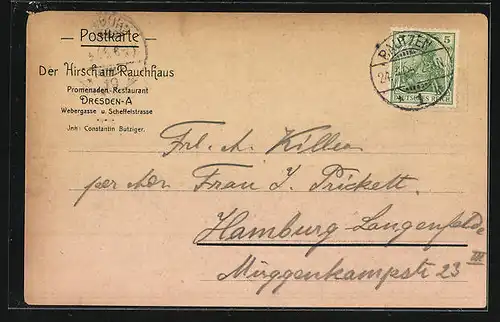 Postkarte
Der Hirsch am Rauchhaus
Promenaden-Restaurant
DRESDEN-A
Webergasse u. Scheffelstrasse
Inh: Constantin Butziger.
BAUTZEN
5
DEUTSCHES REICH
Frl. A. Killen
per Adr. Frau J. Prickett.
Hamburg-Langenfelde
Müggenkampstr 23 III